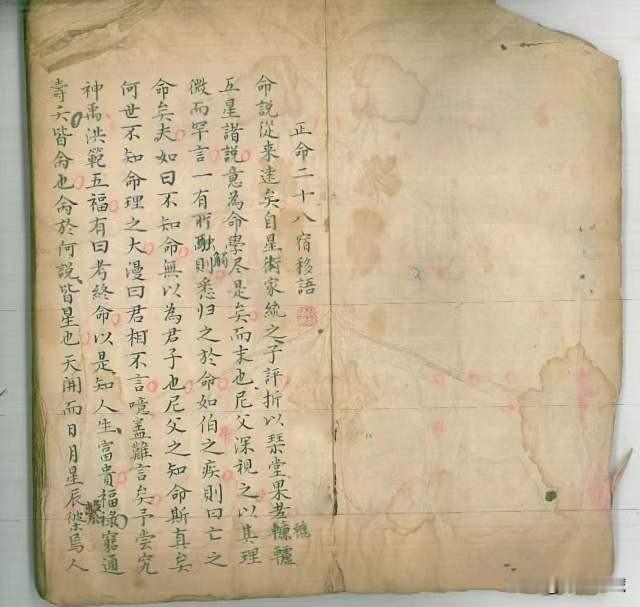 正命二十八宿移語
命說從来遠矣自星術家統之子評折以琹堂果老轆轤
五星諸說意為命學尽是矣而末也尼父深視之以其理
微而罕言一有所觸則悉归之於命如伯之疾則曰亡之
命矣夫如曰不知命無以為君子也尼父之知命斯真矣
何世不知命理之大漫曰君相不言噫盖難言矣予尝究
神禹洪範五福有曰考終命以是知人生富貴福祿窮通
壽夭皆命也命於何說皆星也天開而日月星辰燦焉人